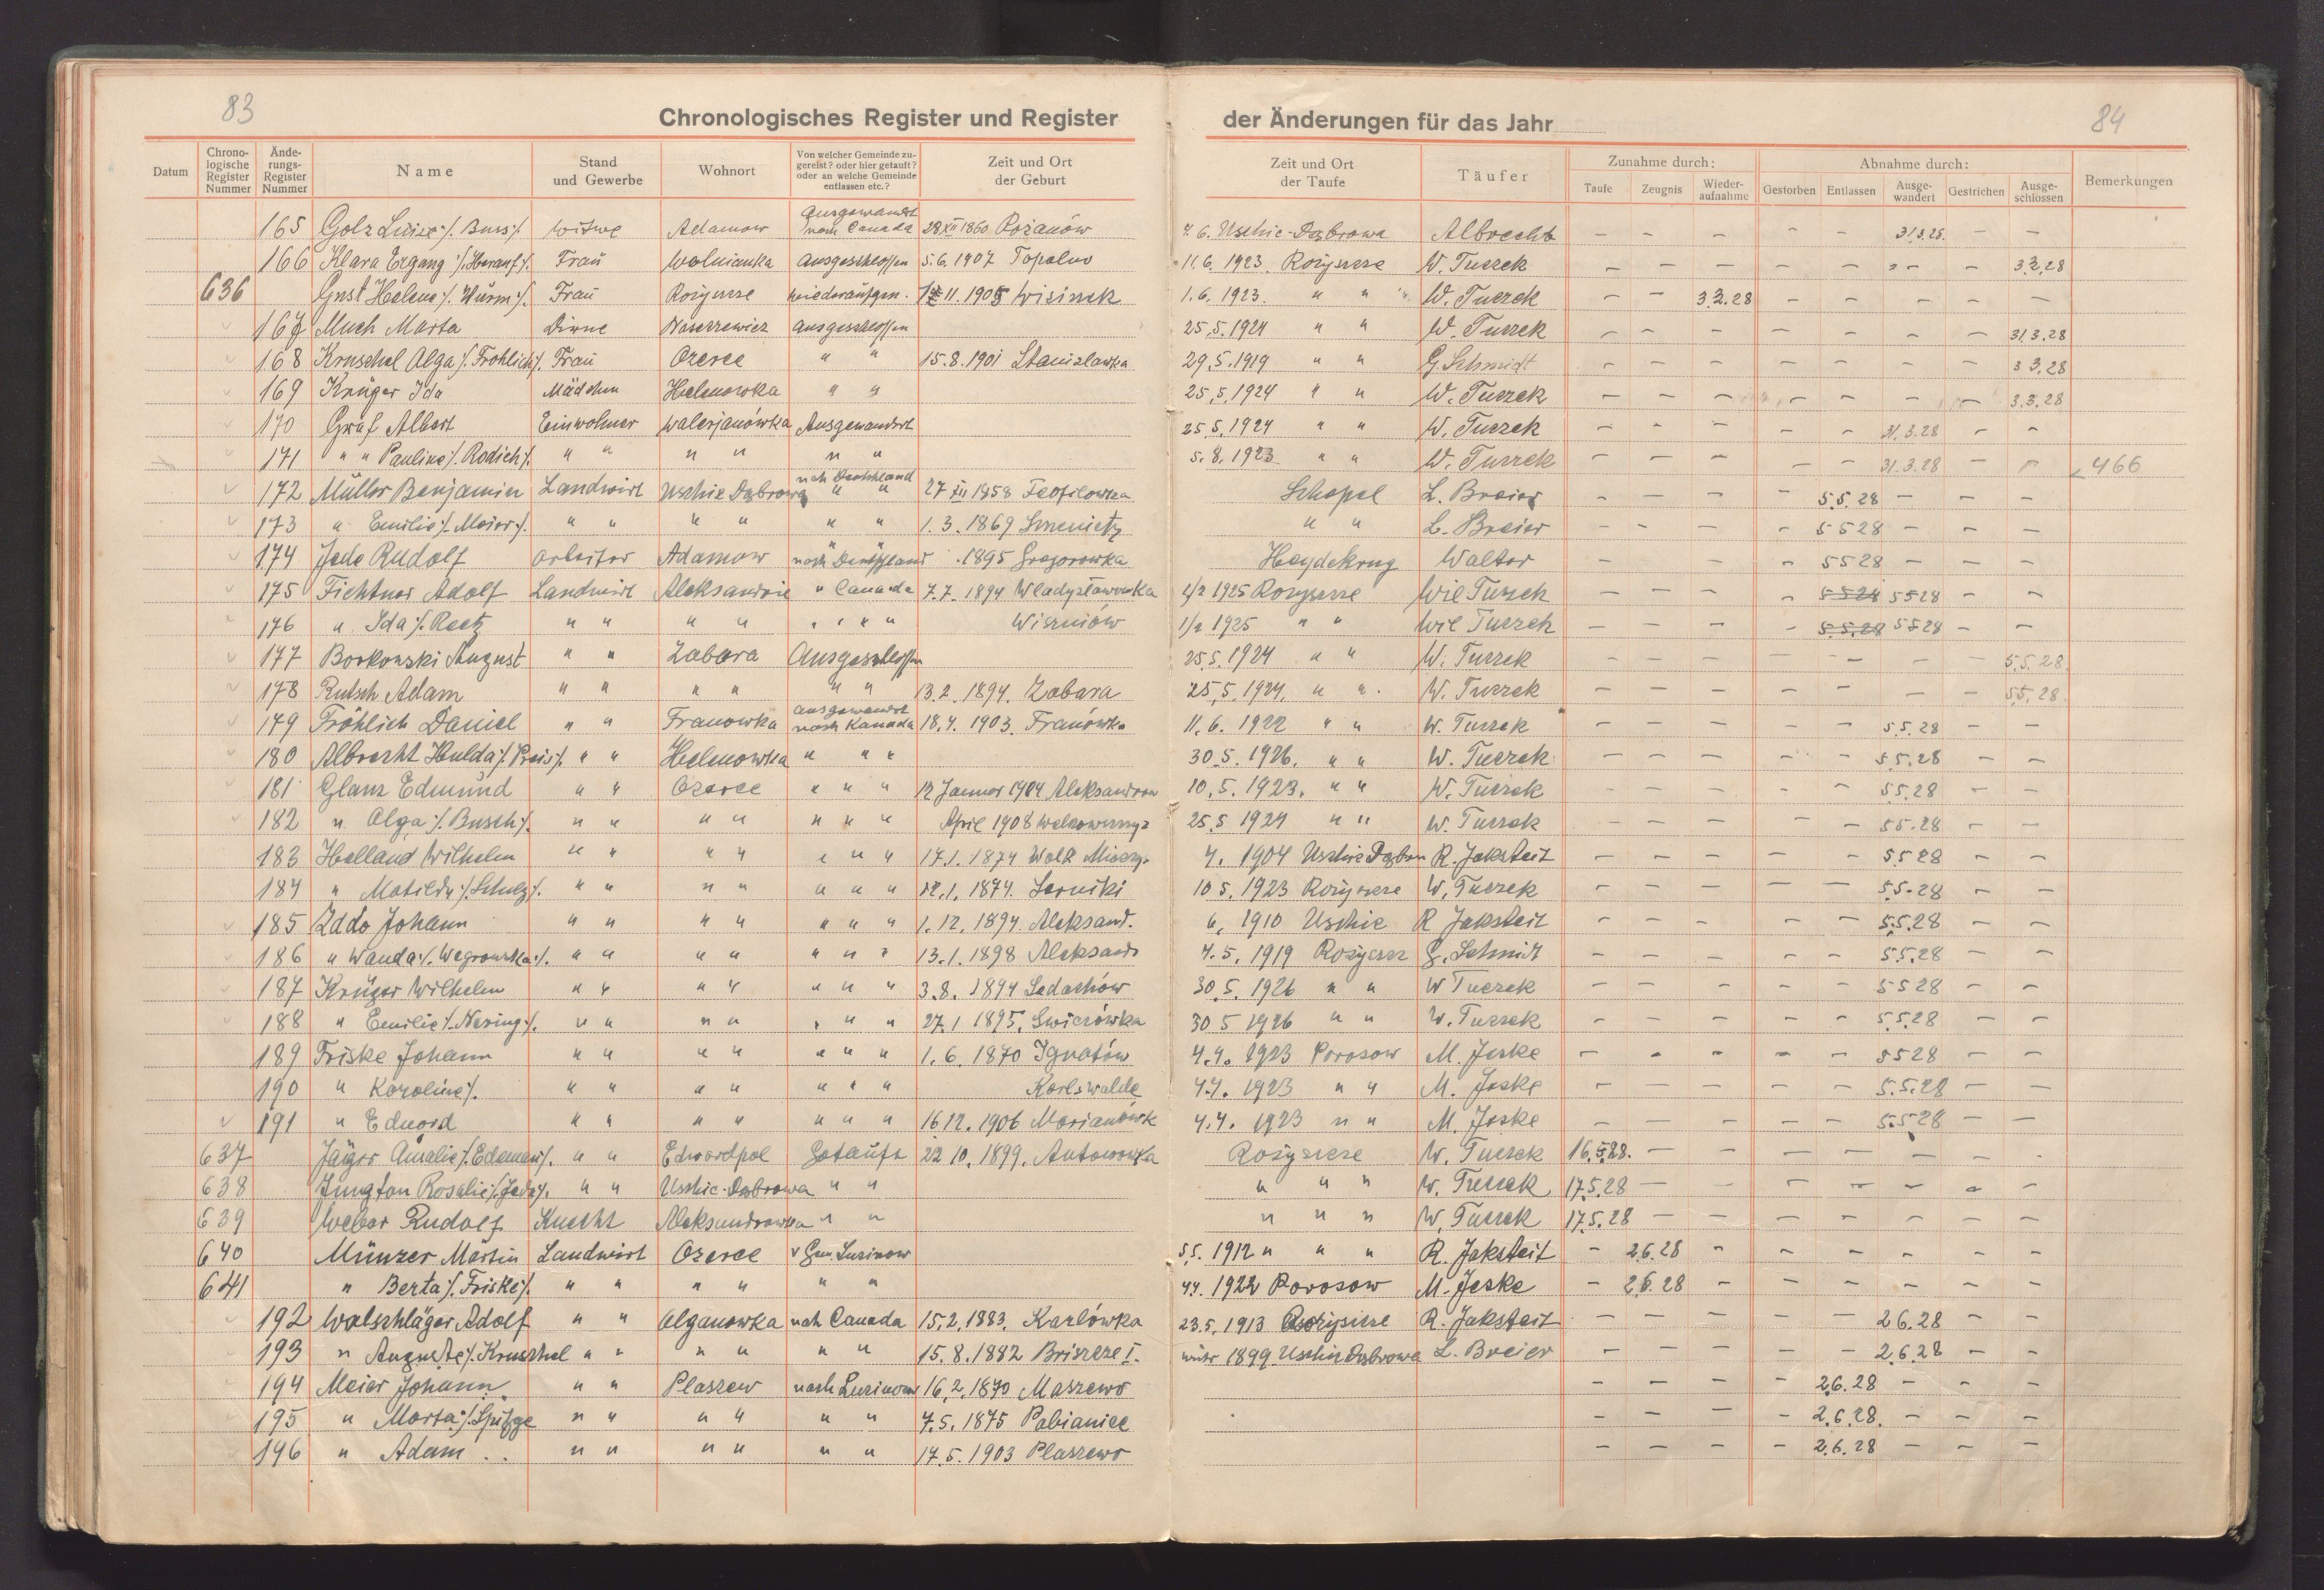 83
Chronologisches Register und Register der Änderungen für das Jahr
84
Datum | Chrono-logische Register Nummer | Ände-rungs-Register Nummer | Name | Stand und Gewerbe | Wohnort | Von welcher Gemeinde zu-gereist? oder hier getauft? oder an welche Gemeinde entlassen etc.? | Zeit und Ort der Geburt | Zeit und Ort der Taufe | Täufer | Zunahme durch: Taufe | Zeugnis | Wieder-aufnahme | Abnahme durch: Gestorben | Entlassen | Ausge-wandert | Gestrichen | Ausge-schlossen | Bemerkungen
165 Golz Luise /. Buss /. Witwe Adamow Ausgewandert nach Canada 28 XII 1860 Rożanów 4. 6. Uschie-Dąbrowa Albrecht – – – – – 31.3.28. – –
166 Klara Ergang /. Frau Wolnianka Ausgeschlossen 5.6.1907 Topolno 11.6.1923. Rozyszcze W. Tuczek – – – – – – – 3.3.28
636 Gust Helene /. Wurm /. Frau Rozyszcze wiederaufgen. 11.1905 1.6.1923. " " W. Tuczek – – 3.3.28
167 Much Marta Dirne ausgeschlossen 25.5.1924 " " W. Tuczek – – – – – – – 31.3.28
168 Kruschel Olga /. Fröhlich /. Frau Ozerce " " 15.8.1901 Stanislawka 29.5.1919 " " G. Schmidt – – – – – – – 3 3.28
169 Krüger Ida Mädchen Helenowka " " 25.5.1924 " " W. Tuczek – – – – – – – 3.3.28
170 Graf Albert Einwohner Walerjanówka Ausgewandert 25.5.1924 " " W. Tuczek – – – – – 31.3.28 – –
171 " " Pauline /. Rodich /. " " " " " " 5.8.1923 " " W. Tuczek – – – – – 31.3.28 – – 466
172 Müller Benjamin Landwirt Uschie Dąbrowa nach Deutschland " " 27 XII 1858 Teofilowka Schopel L. Breier – – – – 5.5.28 – – –
173 " Emilie /. Meier /. " " " " " " 1.3.1869 " " L. Breier – – – – 5 5 28 – – –
174 Jede Rudolf Arbeiter Adamow nach Deutschland 1895 Gregorowka Heydekrug Walter – – – 5 5 28 – – –
175 Fichtner Adolf Landwirt Aleksandrie " Canada 7.7.1894 Wladyslawowka 1/2 1925 Rozyszcze Wil Tuczek – – – – 5 5 28 5 5 28 – –
176 " Ida /. Reetz " " " " " " " " Wiszniów 1/2 1925 " " Wil Tuczek – – – – 5.5.28 5 5 28 – –
177 Borkowski August " " Zabara Ausgeschlossen 25.5.1924 " " W. Tuczek – – – – – – – 5.5.28.
178 Rutsch Adam " " " " " " 13.2.1894. Zabara 25.5.1924. " " W. Tuczek – – – – – – – 5.5.28.
179 Fröhlich Daniel " " Franowka ausgewandert nach Kanada 18.4.1903. Franówka 11.6.1922 " " W. Tuczek – – – – – 5.5.28 – –
180 Albrecht Hulda /. Preis /. " " Helenowka " " " 30.5.1926. " " W. Tuczek – – – – – 5.5.28 – –
181 Glanz Edmund " " Ozerce " " " 12 Januar 1904 10.5.1923. " " W. Tuczek – – – – – 5.5.28 – –
182 " Olga /. Busch /. " " " " " " " April 1908 25.5 1924 " " W. Tuczek – – – – – 5 5.28 – –
183 Helland Wilhelm " " " " " " " 17.1.1874 4. 1904 R. Jaksteit – – – – – 5 5 28 – –
184 " Matilde /. Schulz /. " " " " " " " 12.1.1874. Serniki 10 5.1923 Rozyszcze W. Tuczek – – – – – 5.5.28 – –
185 Zddo Johann " " " " " " " 1.12.1894. Aleksand. 6. 1910 Uschie R Jaksteit – – – – – 5.5.28 – –
186 " Wanda /. Wegrowska /. " " " " " " " 13.1.1898 4.5.1919 G. Schmidt – – – – – 5.5.28 – –
187 Krüger Wilhelm " " " " " " " 3.8.1894 Sadachów 30.5.1926 " " W Tuczek – – – – – 5 5 28 – –
188 " Emilie /. Nering /. " " " " " " " 27.1 1895. 30 5 1926 " " W. Tuczek – – – – – 5.5.28 – –
189 Friske Johann " " " " " " " 1.6.1870 Ignatów 4.4.1923 Porosow M. Jeske – – – – – 5 5 28 – –
190 " Karoline /. " " " " " " " Karlswalde 4.4.1923 " " M. Jeske – – – – – 5.5.28 – –
191 " Eduard " " " " " " " 16 12.1906 4.4.1923 " " M. Jeske – – – – – 5.5 28 – –
637 Jäger Amalie /. Edeman /. " " Edwardpol Getauft 22 10.1899. Antonowka Rozyszcze W. Tuczek 16.5.28. – – – – – – –
638 Rosalie /. Jede /. " " Uschie-Dąbrowa " " " " " W. Tuczek 17.5.28 – – – – – – –
639 Weber Rudolf Knecht Aleksandrowka " " " " " W. Tuczek 17.5.28 – – – – – – –
640 Münzer Martin Landwirt Ozerce v Gem. Luzinow 5.5.1912 " " " R. Jaksteit – 2.6.28 – – – – – –
641 " Berta /. Friske /. " " " " " " 4.4.1922 Porosow M. Jeske – 2.6.28 – – – – – –
192 Walschläger Adolf " " Olganowka nach Canada 15.2.1883. Karlówka 23.5.1913 Rozyszcze R. Jaksteit – – – – – 2 6.28 – –
193 " Auguste /. Kruschel " " " " " " 15.8.1882 Briszcze I. 1899 Uschie Dąbrowa L. Breier – – – – – 2.6.28 – –
194 Meier Johann " " Plaszew nach Luzinow 16.2.1870 Maszewo – – – – 2.6.28 – – –
195 " Marta /. Spitzge " " " " " " 7.5.1875 Pabianice – – – – 2.6.28. – – –
196 " Adam " " " " " " 17.5.1903 Plaszewo – – – – 2.6.28 – – –